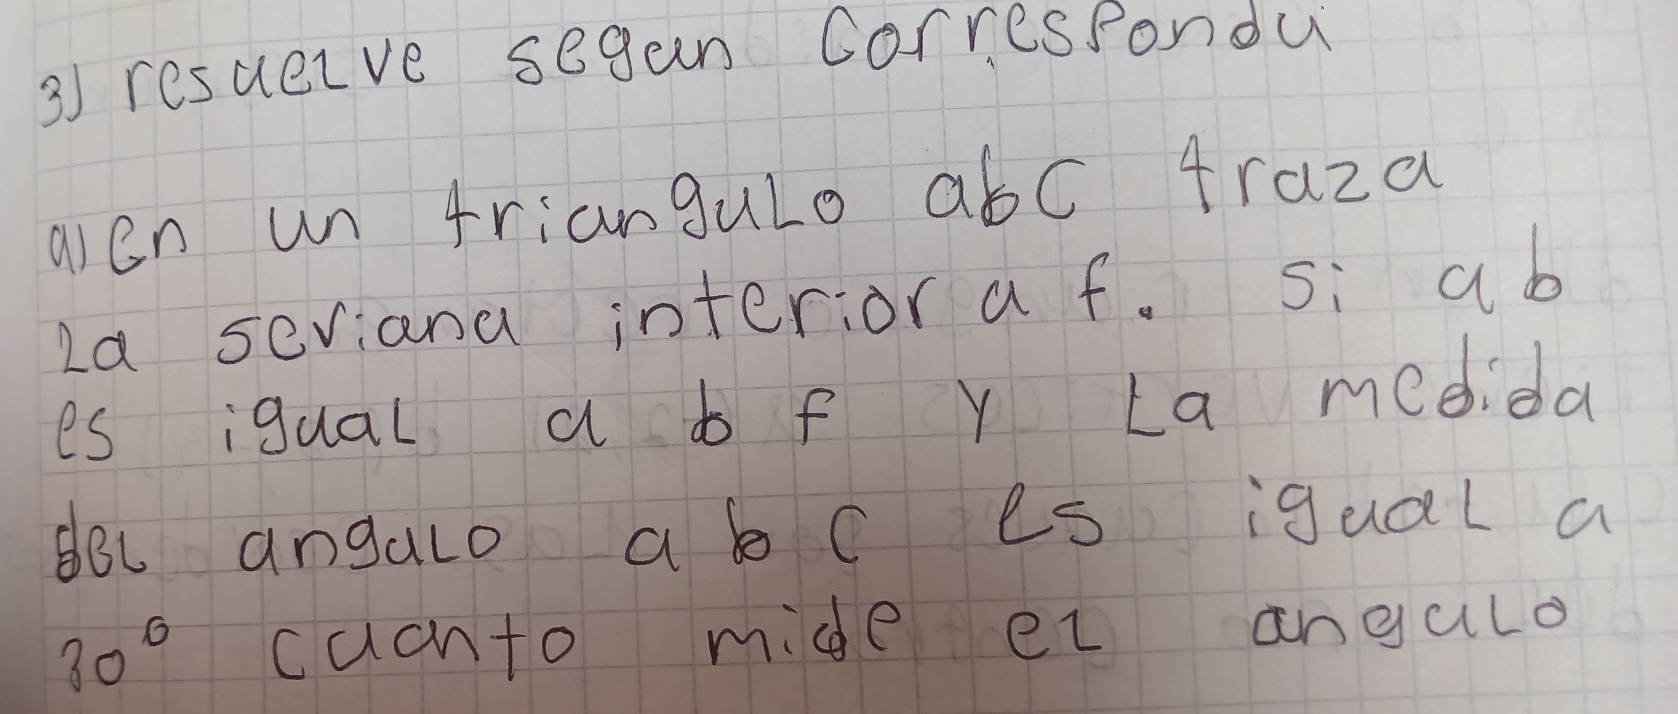 3) resuelve segun Correspondu
a) en un triangulo abC traza
la seviana interior a f. si ab
es igual a b f y La medida
del angulo a b C es igual a
30° cuanto mide el angulo